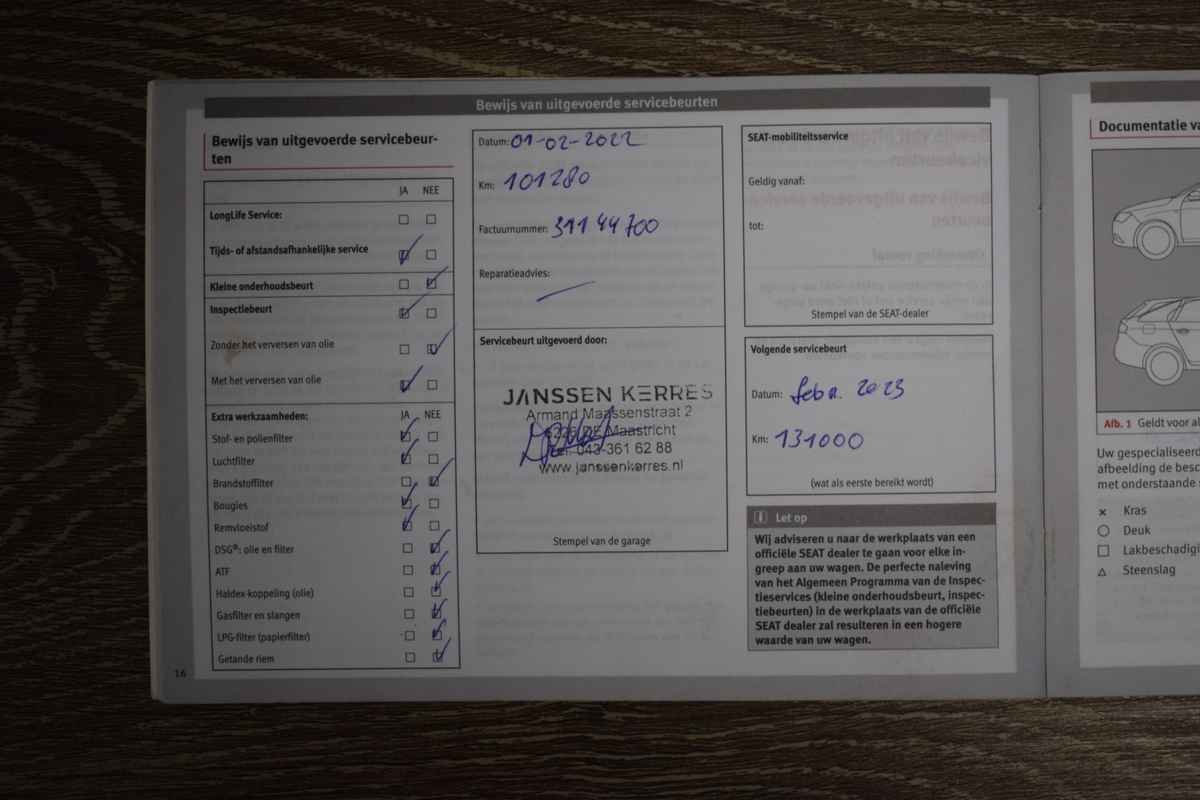 Bewijs van uitgevoerde servicebeurten
Bewijs van uitgevoerde servicebeur-
ten
JA NEE
LongLife Service:
Tijds- of afstandsafhankelijke service
Kleine onderhoudsbeurt
Inspectiebeurt
Zonder het verversen van olie
Met het verversen van olie
Extra werkzaamheden: JA NEE
Stof- en pollenfilter
Luchtfilter
Brandstoffilter
Bougies
Remvloeistof
DSG®: olie en filter
ATF
Haldex-koppeling (olie)
Gasfilter en slangen
LPG-filter (papierfilter)
Getande riem
16
Datum: 01-02-2022
Km: 101280
Factuurnummer: 31144700
Reparatieadvies:
Servicebeurt uitgevoerd door:
JANSSEN KERRES
Armand Maassenstraat 2
6226 DE Maastricht
Tel. 043-361 62 88
www.janssenkerres.nl
Stempel van de garage
SEAT-mobiliteitsservice
Geldig vanaf:
tot:
Stempel van de SEAT-dealer
Volgende servicebeurt
Datum: febr. 2023
Km: 131000
(wat als eerste bereikt wordt)
i Let op
Wij adviseren u naar de werkplaats van een
officiële SEAT dealer te gaan voor elke in-
greep aan uw wagen. De perfecte naleving
van het Algemeen Programma van de Inspec-
tieservices (kleine onderhoudsbeurt, inspec-
tiebeurten) in de werkplaats van de officiële
SEAT dealer zal resulteren in een hogere
waarde van uw wagen.
Documentatie va
Afb. 1 Geldt voor al
Uw gespecialiseerd
afbeelding de besc
met onderstaande s
Kras
Deuk
Lakbeschadigi
Steenslag